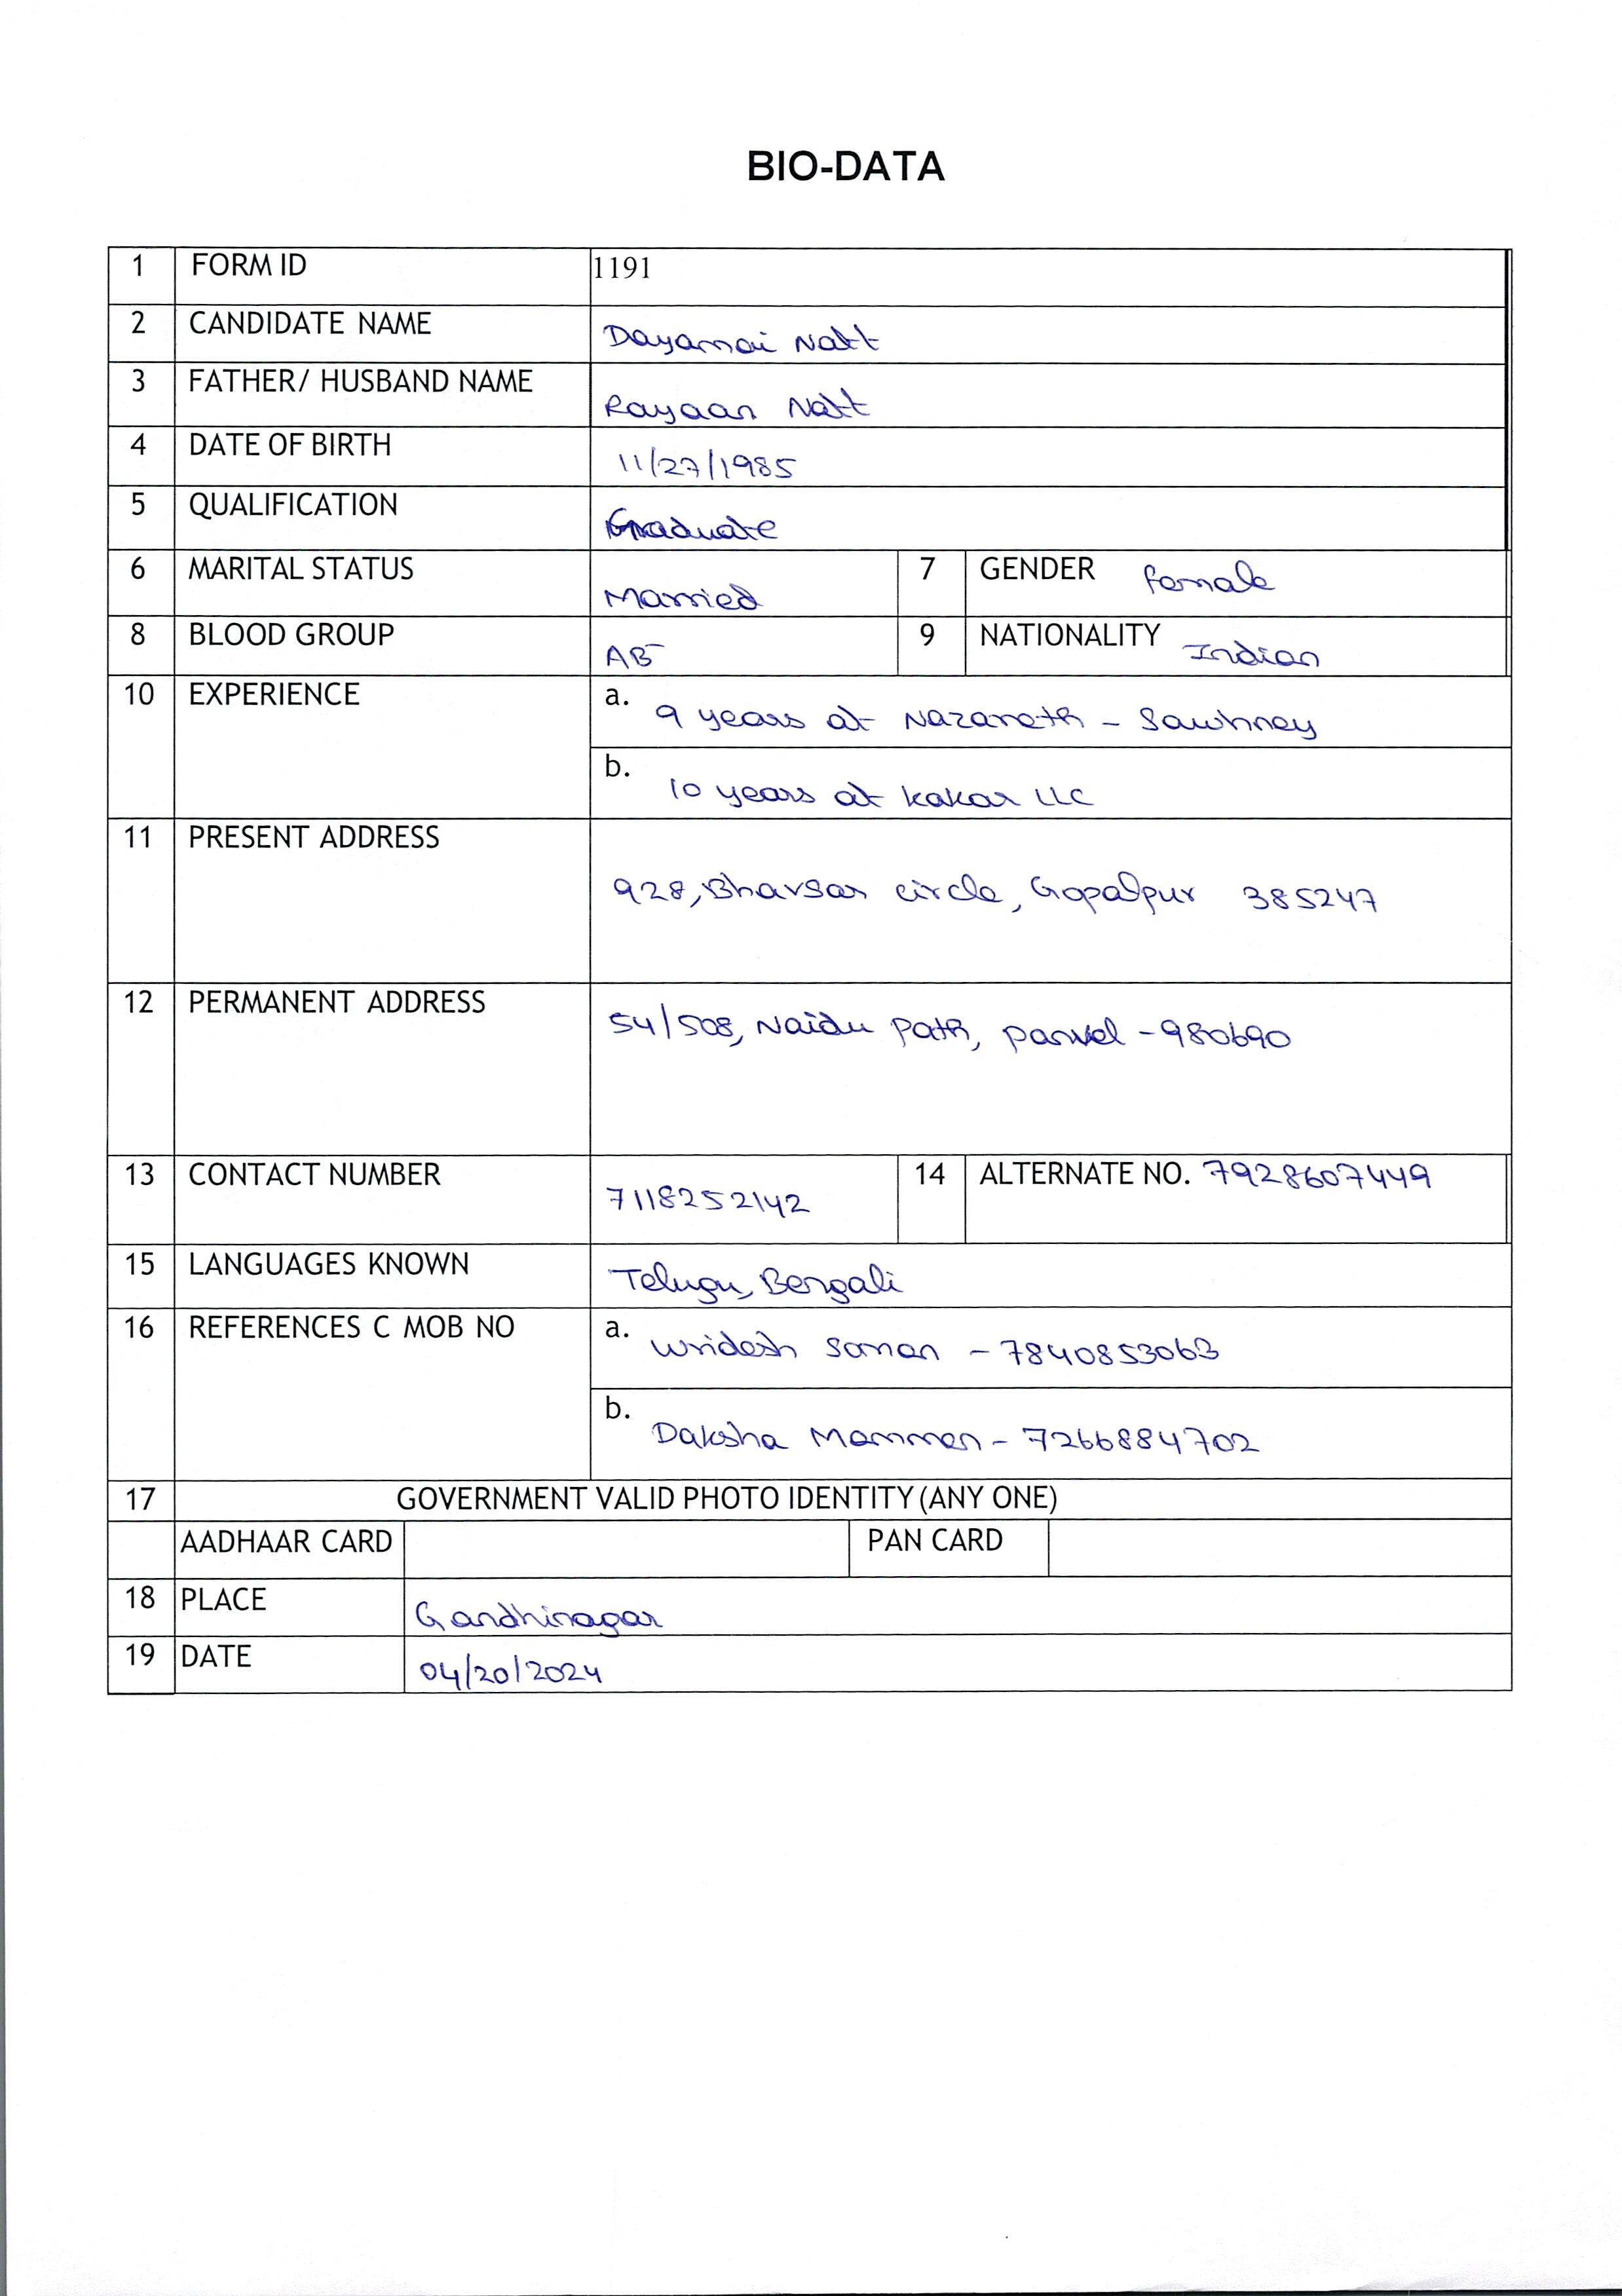 BIO-DATA
1 FORM ID 1191
2 CANDIDATE NAME Dayamai Natt
3 FATHER/ HUSBAND NAME Rayaan Natt
4 DATE OF BIRTH 11/27/1985
5 QUALIFICATION Graduate
6 MARITAL STATUS Married 7 GENDER female
8 BLOOD GROUP AB- 9 NATIONALITY Indian
10 EXPERIENCE a. 9 years at Nazareth - Sawhney
b. 10 years at kakar LLC
11 PRESENT ADDRESS
928, Bhavsar circle, Gopalpur 385247
12 PERMANENT ADDRESS 54/508, Naidu Path, panvel - 980690
13 CONTACT NUMBER 7118252142 14 ALTERNATE NO. 7928607449
15 LANGUAGES KNOWN Telugu, Bengali
16 REFERENCES C MOB NO a. Wridesh Soman - 7840853063
b. Daksha Mammen - 7266884702
17 GOVERNMENT VALID PHOTO IDENTITY (ANY ONE)
AADHAAR CARD PAN CARD
18 PLACE Gandhinagar
19 DATE 04/20/2024